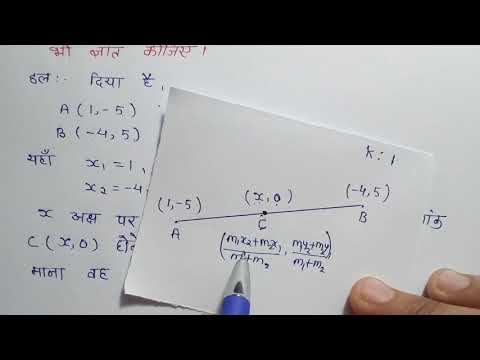 भी ज्ञात कीजिए।
हल:- दिया है,
A (1,-5)
B (-4,5)
यहाँ x₁ = 1,
x₂ = -4
x अक्ष पर
C (x,0) होने
माना वह
K : 1
(1,-5) (x,0) (-4,5)
A C B
(m₁x₂+m₂x₁/m₁+m₂, m₁y₂+m₂y₁/m₁+m₂)